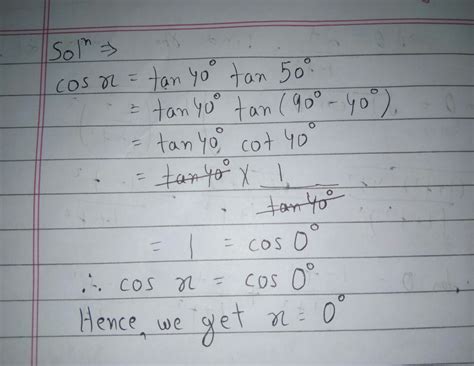 Solⁿ ⇒
cos x = tan 40° tan 50°
= tan 40° tan (90° - 40°)
= tan 40° cot 40°
= tan 40° × 1
tan 40°
= 1 = cos 0°
∴ cos x = cos 0°
Hence, we get x = 0°